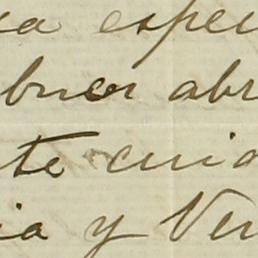 a espe
buen abr
te cuid
ia y Ver